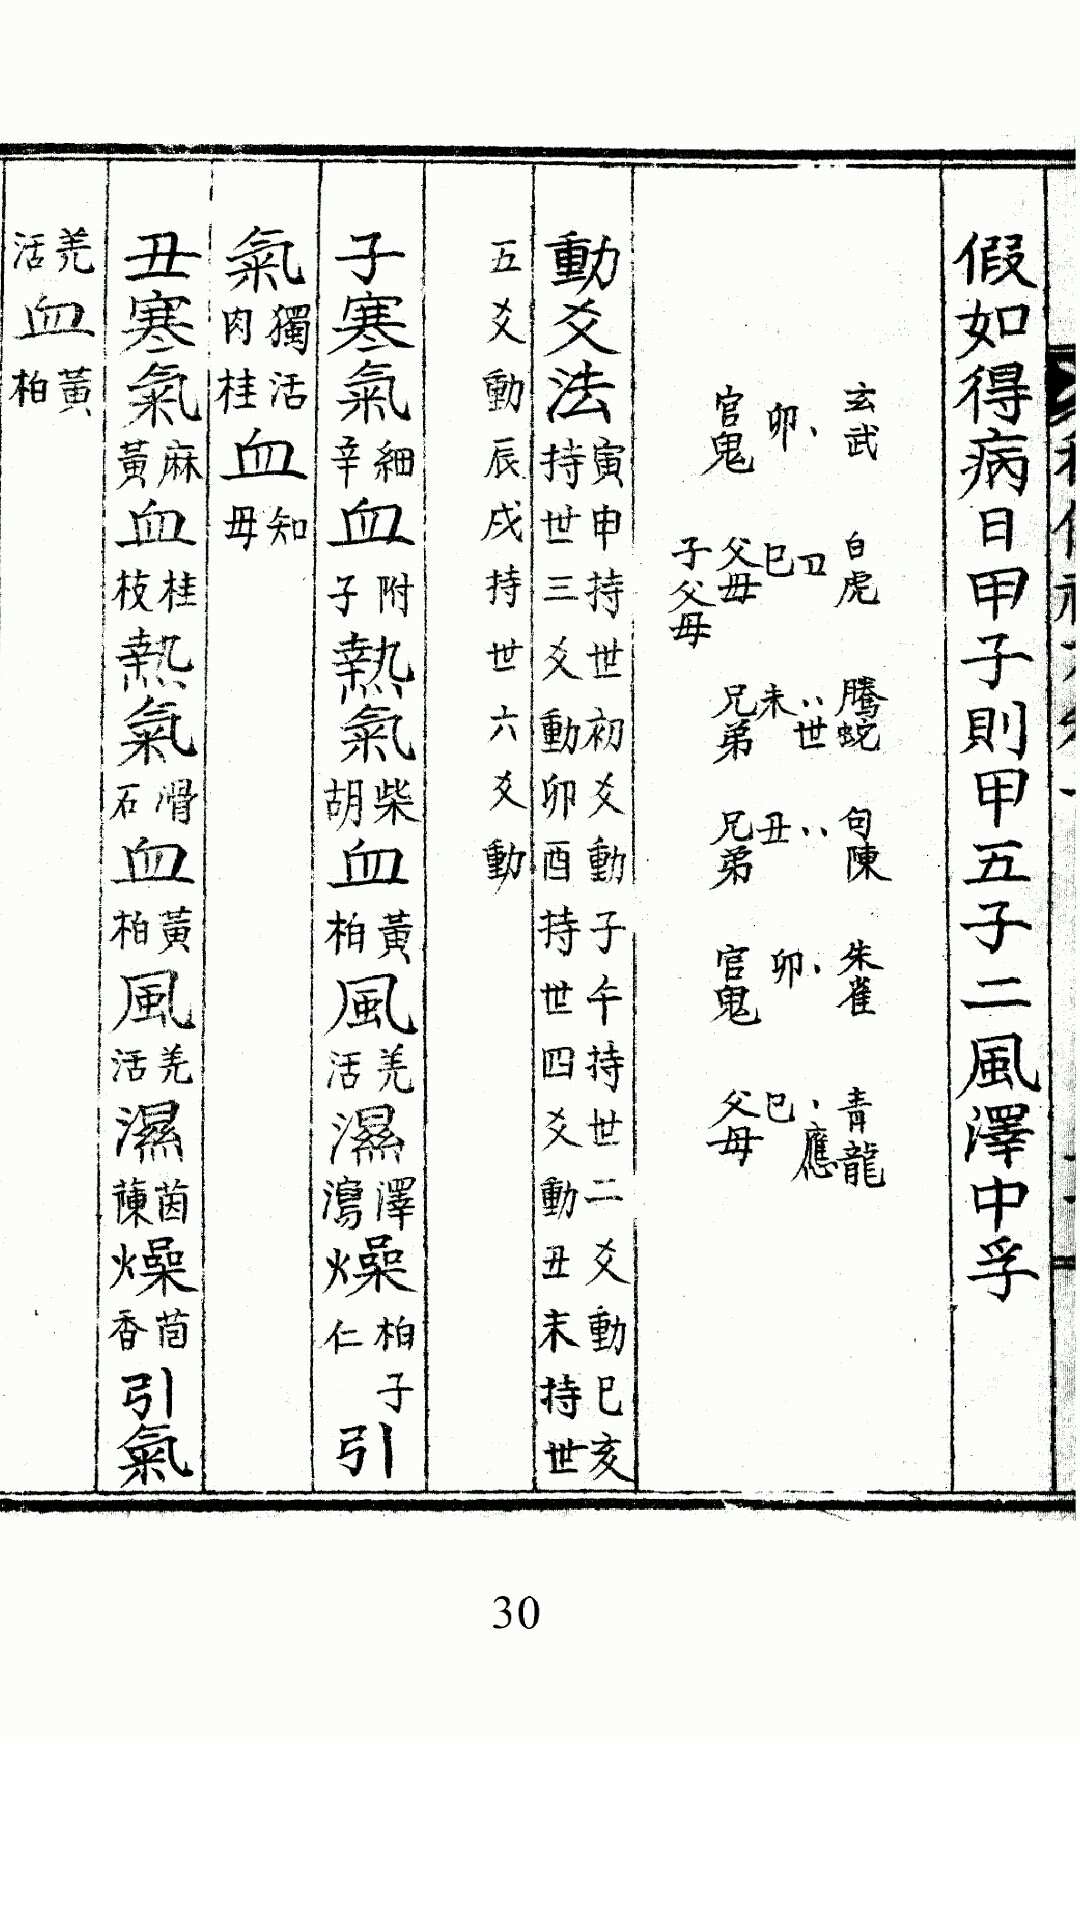 假如得病日甲子則甲五子二風澤中孚
玄武 白虎 騰蛇 句陳 朱雀 青龍
卯、 巳 丑 未 世 丑 卯、 巳、應
官鬼 父母 兄弟 兄弟 官鬼 父母
子父母
動爻法 寅申持世初爻動子午持世二爻動巳亥
持世三爻動卯酉持世四爻動丑未持世
五爻動辰戌持世六爻動
子寒氣細辛血附子熱氣柴胡血黃柏風羌活濕澤瀉燥柏子仁引
氣獨活肉桂血知母
丑寒氣麻黃血桂枝熱氣滑石血黃柏風羌活濕茵蔯燥茴香引氣
羌活血黃柏
30